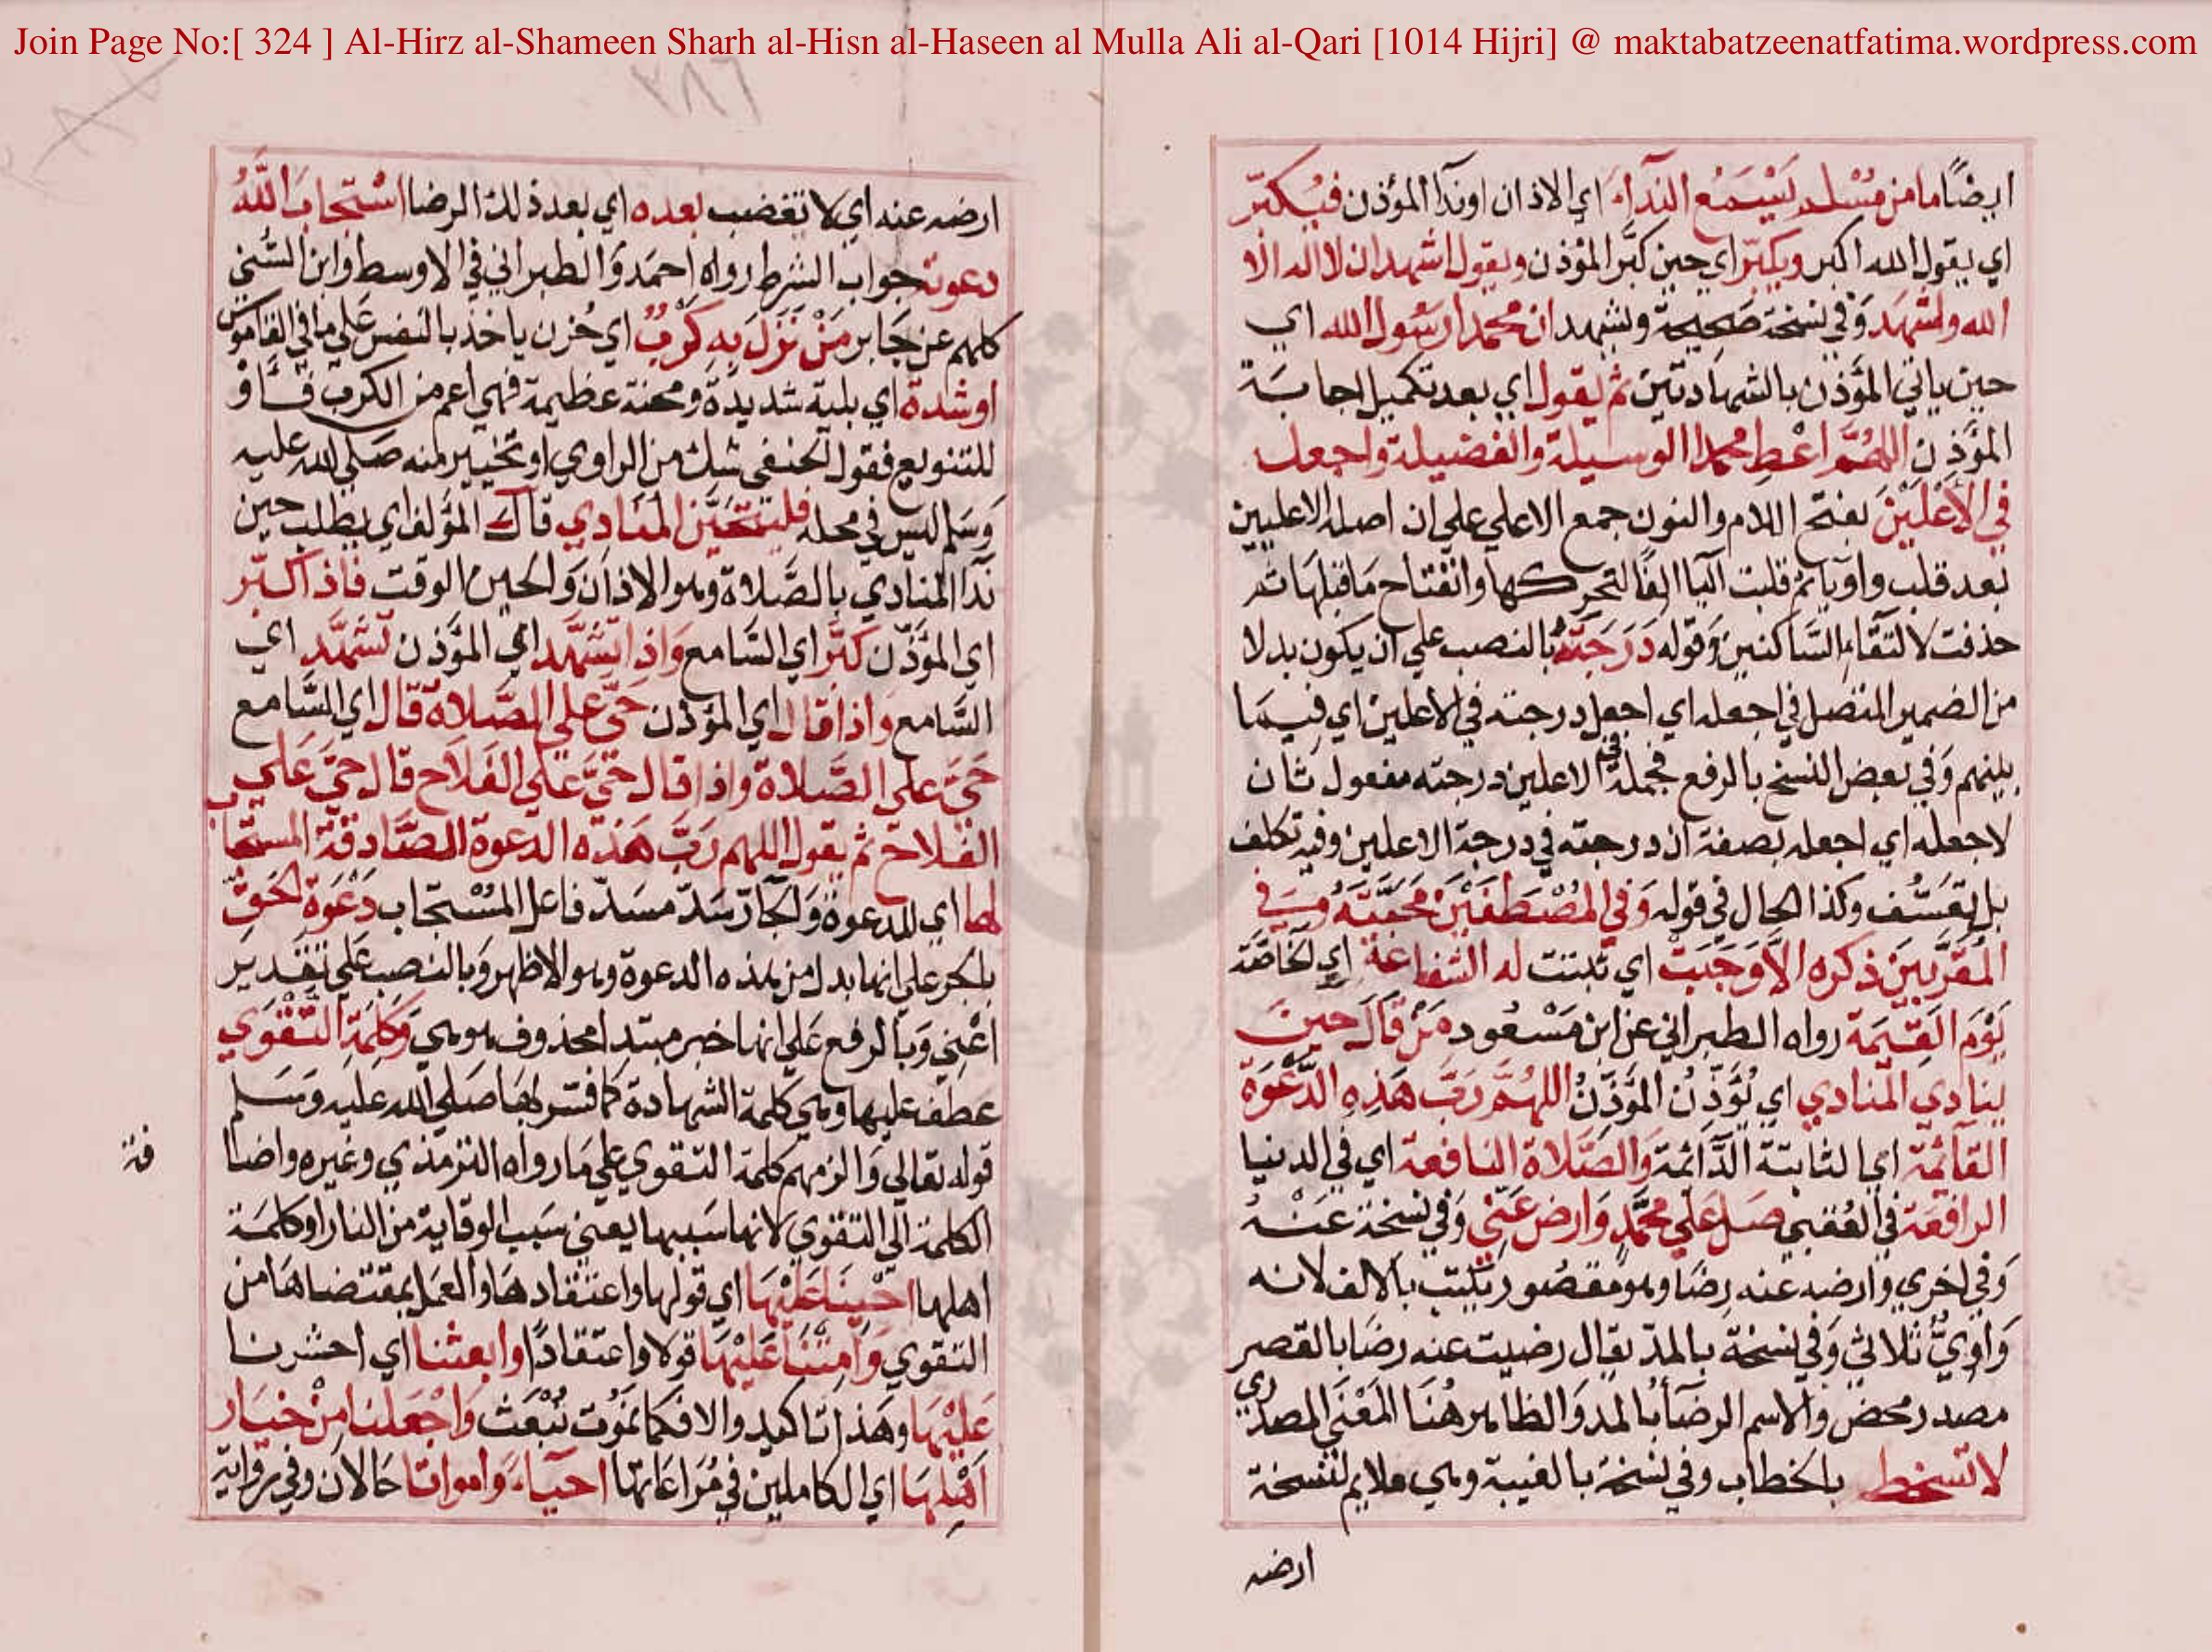 Join Page No:[ 324 ] Al-Hirz al-Shameen Sharh al-Hisn al-Haseen al Mulla Ali al-Qari [1014 Hijri] @ maktabatzeenatfatima.wordpress.com
٣٨٦
ايضًا ما من مُسْلم يَسْمَع النداءَ اي الاذان او ندآ المؤذن فيُكبّر
اي يقول الله اكبر ويكبّر اي حين كبَّر المؤذن ويقول اشهد ان لا اله الا
الله ولشهَد وَفي نسخة صَحيحة ويشهد ان محمدا رسُول الله اي
حين ياتي المؤذن بالشهادتين ثم يقول اي بعد تكميل اجابَة
المؤذن اللهُمَّ اعْطِ محمدا الوسيلة والفضيلة واجعله
في الأعْلَيْنَ بفتح اللام والنون جمع الاعلي علي ان اصله الاعليين
بعد قلب واوه ياثم قلبت اليا الفًا لتحركها وانفتاح مَا قبلها ثم
حذفت لالتقاءِ السَّاكنين وَقوله دَرَجَتَهُ بالنصب علي ان يكون بدلا
من الضمير المتصل في اجعله اي اجعل درجته في الاعلين اي فيمَا
بينهم وَفي بعض النسخ بالرفع فجملة في الاعلين درجته مفعول ثان
لاجعله اي اجعله بصفة ان درجته في درجة الاعلين وفيه تكلف
بل تعَسُّف وكذا الحال في قوله وَفي المُصْطَفَيْنَ مَحَبَّتَهُ وَفي
المُقَرَّبينَ ذكره الاَّ وَجَبَتْ اي ثبتت له الشفاعة اي الخاصَّة
يَوْمَ القِيٰمَة رواه الطبراني عن ابن مَسْعُود مَنْ قالَ حينَ
ينادي المنادي اي يُؤَذِّنُ المؤَذِّنُ اللهُمَّ رَبَّ هَذِهِ الدَّعْوَة
القائمة اي الثابتة الدَّائمة وَالصَّلاة النافعة اي في الدنيا
الرافعَة في العُقبي صَلِّ عَلي محمَّدٍ وَارضَ عَنِّي وَفي نسخة عَنْهُ
وَفي اخري وارضه عنه رضًا وهو مقصُور يكتب بالالف لانه
وَاوِيٌّ ثلاثي وَفي نسخة بالمد يقال رضيت عنه رضَا بالقصر
مصدر محض وَالاسم الرضآءُ بالمد وَالظاهر هُنَا المَعْنَي المصدري
لا تسخط بالخطاب وفي نسخة بالغيبة وهي ملايم لنسخة
ارضه
ارضه عنه اي لا تغضب بعده اي بعد ذلك الرضا اسْتجابَ اللَّهُ
دعوته جواب الشرط رواه احمَد وَالطبراني في الاوسط وابن السُّني
كلهم عن جَابر مَنْ نَزَلَ بِهِ كَرْبٌ اي حُزن ياخذ بالنفس عَلي ما في القاموس
اوشدة اي بلية شديدة ومحنة عظيمة فهي اعم من الكرب فَاَوْ
للتنويع فقول الحنفي شك من الراوي او تخيير منه صَلي الله عليه
وَسَلم ليس في محله فليتحَيَّن المنَادِي قالَ المؤلف اي يطلب حين
ندا المنادي بالصَّلاة وهو الاذان وَالحين الوقت فاذا كبّر
اي المؤذّن كبَّر اي السَّامع وَاذا تشهَّد اي المؤَّذن تشهَّد اي
السَّامع واذا قال اي المؤذن حَيَّ علي الصَّلاة قال اي السَّامع
حَيَّ علي الصَّلاة واذا قال حَيَّ عَلي الفَلاَح قال حَيَّ عَلي
الفلاح ثم يقول اللهم رَبَّ هَذه الدعوة الصَّادقة المستجاب
لها اي للدعوة وَالجَارّ سَدّ مسَدّ فاعل المُسْتجاب دَعْوَة الحَقِّ
بالجر علي انها بدل من هذه الدعوة وهو الاظهر وَبالنصب عَلي تقدير
اعْنِي وَبالرفع عَلي انها خبر مبتدا محذوف هو هي وَكَلِمَةِ التَّقْوَي
عطف عليها وهي كلمة الشهادة كما فسّر بها صَلي الله عليه وَسَلم
قوله تعالي وَالزمهم كلمة التقوي علي مَا رواه الترمذي وغيره واضا
فة
الكلمة الي التقوي لانها سَببها يعني سَبب الوقاية من النار او كلمَة
اهلها احْيِنَا عَلَيْهَا اي قولها واعتقادهَا والعَمل بمقتضاهَا من
التقوي وَامِتْنَا عَلَيْهَا قولا واعتقادًا وابعثنا اي احشرنا
عَلَيْهَا وهَذا تاكيد والا فكما نَمُوت نُبْعَث وَاجْعَلنا مِنْ خيَار
اَهْلِهَا اي الكاملين في مُرَاعَاتها احيَاءً وَامواتا حَالان وفي رواية